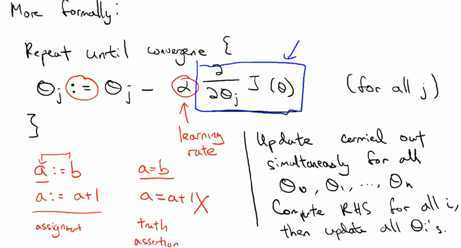 More formally:
Repeat until convergence {
θj := θj - α ∂/∂θj J(θ) (for all j)
}
learning rate
a := b
a := a+1
assignment
a = b
a = a+1 X
truth assertion
Update carried out
simultaneously for all
θ0, θ1, ..., θn
Compute RHS for all i,
then update all θi's.